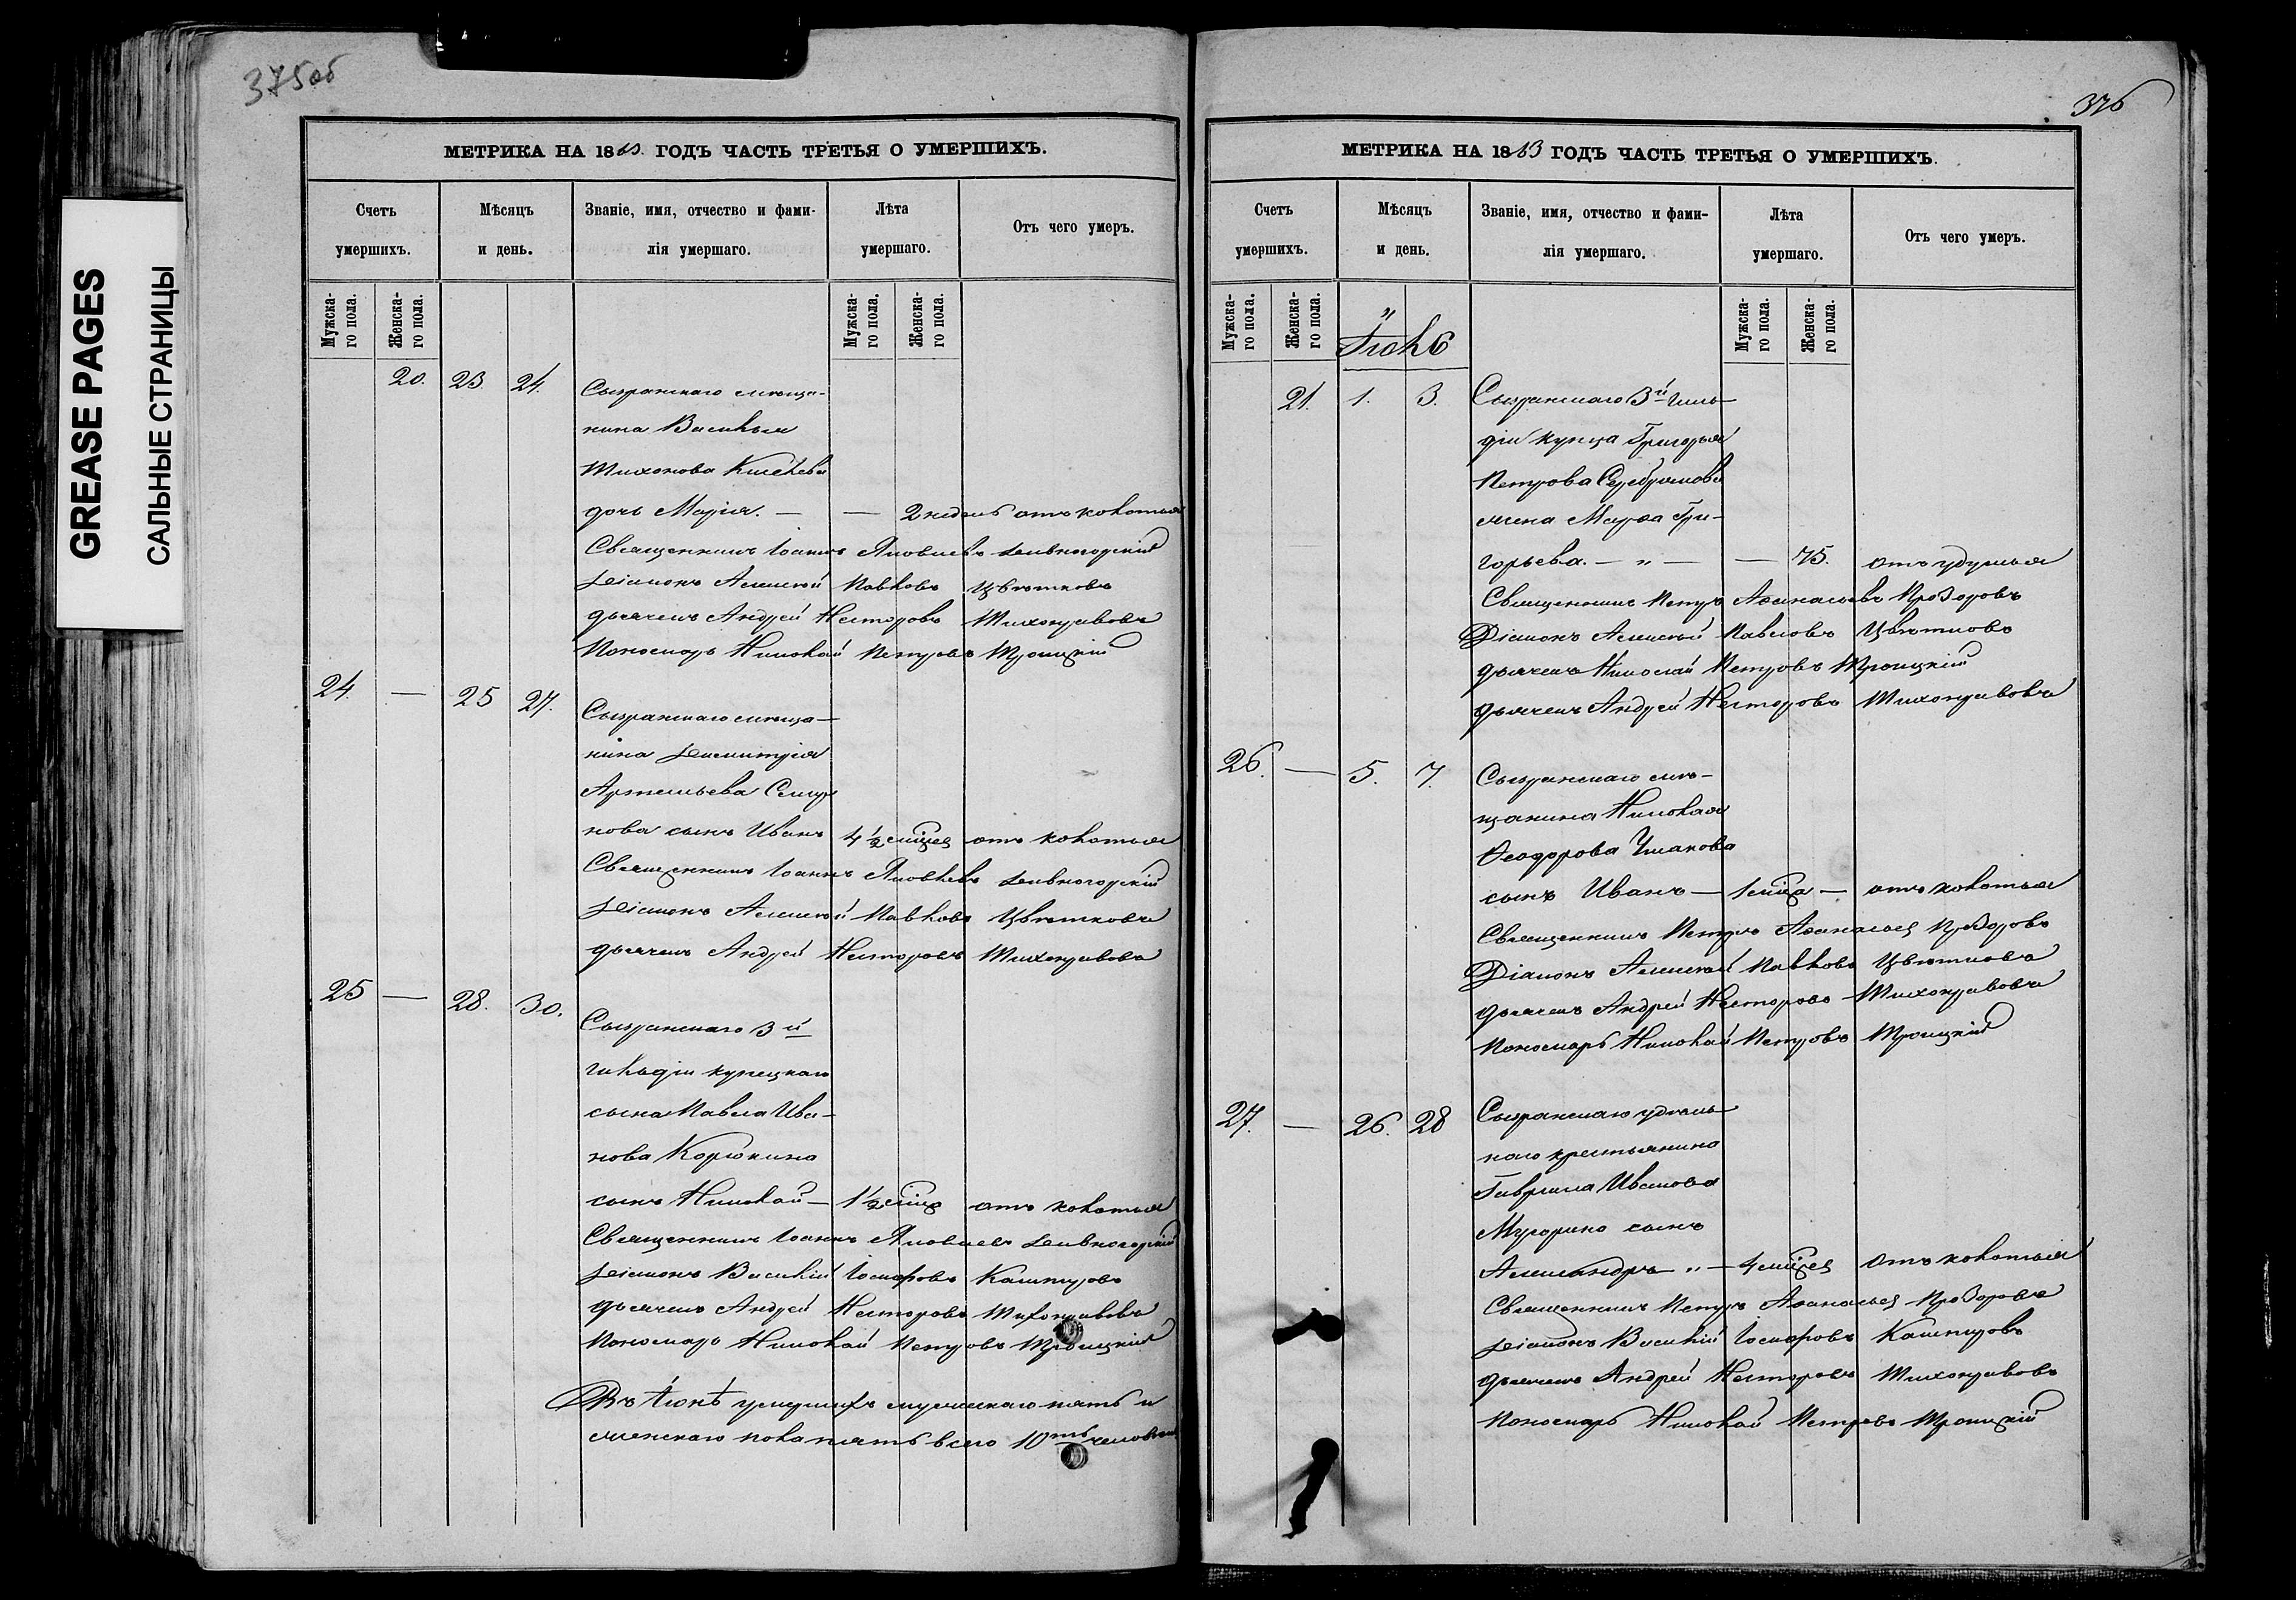 375об
GREASE PAGES
САЛЬНЫЕ СТРАНИЦЫ
МЕТРИКА НА 1863. ГОДЪ ЧАСТЬ ТРЕТЬЯ О УМЕРШИХЪ.
Счетъ умершихъ.
Мѣсяцъ и день.
Званіе, имя, отчество и фами-
лія умершаго.
Лѣта умершаго.
Отъ чего умеръ.
Мужска-
го пола.
Женска-
го пола.
Мужска-
го пола.
Женска-
го пола.
20. 23. 24. Сызранскаго мѣща-
нина Василья
Тихонова
дочь Марія. — — 2 недель отъ колотья
Священникъ Іоаннъ Яковлевъ Дивногорскій
Діаконъ Алексѣй Павловъ Цвѣтковъ
дьячекъ Андрей Несторовъ Тихонравовъ
Пономарь Николай Петровъ Троицкій
24. — 25 27. Сызранскаго мѣща-
нина Димитрія
Артемьева
нова сынъ Иванъ 4½ мѣсяц отъ колотья
Священникъ Іоаннъ Яковлевъ Дивногорскій
Діаконъ Алексѣй Павловъ Цвѣтковъ
дьячекъ Андрей Несторовъ Тихонравовъ
25 — 28. 30. Сызранскаго 3й
гильдіи купецкаго
сына Павла Ива-
нова Корюкина
сынъ Николай — 1½ мѣсяц отъ колотья
Священникъ Іоаннъ Яковлевъ Дивногорскій
Діаконъ Василій Іосифовъ Каштровъ
дьячекъ Андрей Несторовъ Тихонравовъ
Пономарь Николай Петровъ Троицкій
Въ Іюнѣ умершихъ мужескаго пять и
женскаго пола пять всего 10ть человѣкъ
376
МЕТРИКА НА 1863 ГОДЪ ЧАСТЬ ТРЕТЬЯ О УМЕРШИХЪ.
Счетъ умершихъ.
Мѣсяцъ и день.
Званіе, имя, отчество и фами-
лія умершаго.
Лѣта умершаго.
Отъ чего умеръ.
Мужска-
го пола.
Женска-
го пола.
Мужска-
го пола.
Женска-
го пола.
Іюль
21. 1. 3. Сызранскаго 3й гиль-
діи купца Григорья
Петрова Серебрякова
жена Марѳа Гри-
горьева. — „ — — 75. отъ удушья
Священникъ Петръ Аѳанасьевъ Прозоровъ
Діаконъ Алексѣй Павловъ Цвѣтковъ
дьячекъ Николай Петровъ Троицкій
дьячекъ Андрей Несторовъ Тихонравовъ
26. — 5. 7. Сызранскаго мѣ-
щанина Николая
Ѳеодорова Ушакова
сынъ Иванъ — 1 мѣсяца — отъ колотья
Священникъ Петръ Аѳанасьев Прозоровъ
Діаконъ Алексѣй Павловъ Цвѣтковъ
дьячекъ Андрей Несторовъ Тихонравовъ
Пономарь Николай Петровъ Троицкій
27. — 26. 28 Сызранскаго удѣль-
наго крестьянина
Гаврила Иванова
сынъ
Александръ — „ — 4 мѣсяцев отъ колотья
Священникъ Петръ Аѳанасьев Прозоровъ
Діаконъ Василій Іосифовъ Каштровъ
дьячекъ Андрей Несторовъ Тихонравовъ
Пономарь Николай Петровъ Троицкій